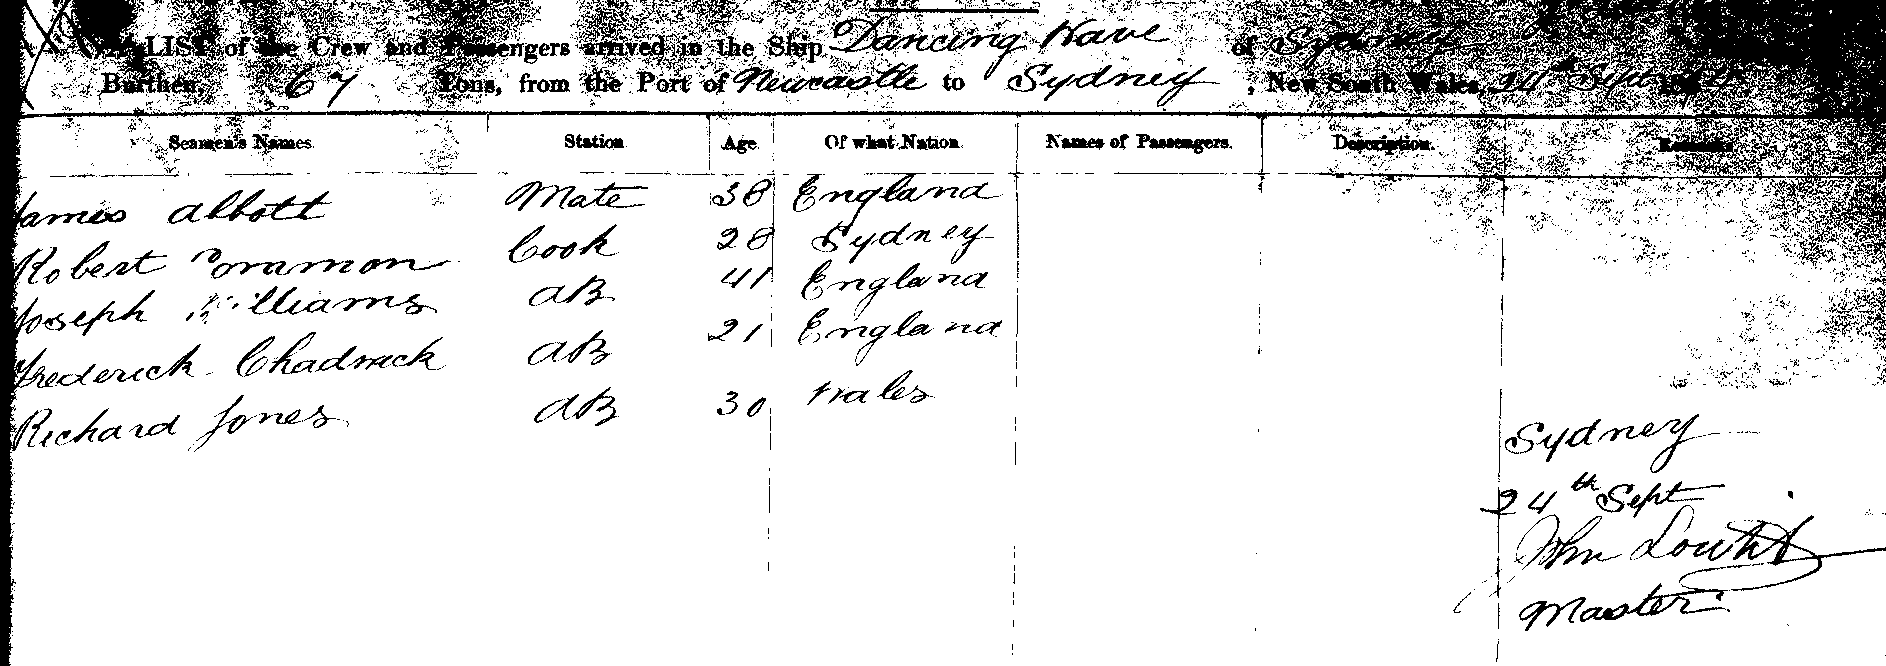 LIST of the Crew and Passengers arrived in the Ship Dancing Wave of Sydney
Burthen, 67 Tons, from the Port of Newcastle to Sydney, New South Wales, 24th Sept
Seamen's Names. Station Age Of what Nation. Names of Passengers. Description. Remarks
James Abbott Mate 38 England
Robert Cook 28 Sydney
Joseph Williams AB 41 England
Frederick Chadwick AB 21 England
Richard Jones AB 30 Wales
Sydney
24th Sept
John Loutit
Master